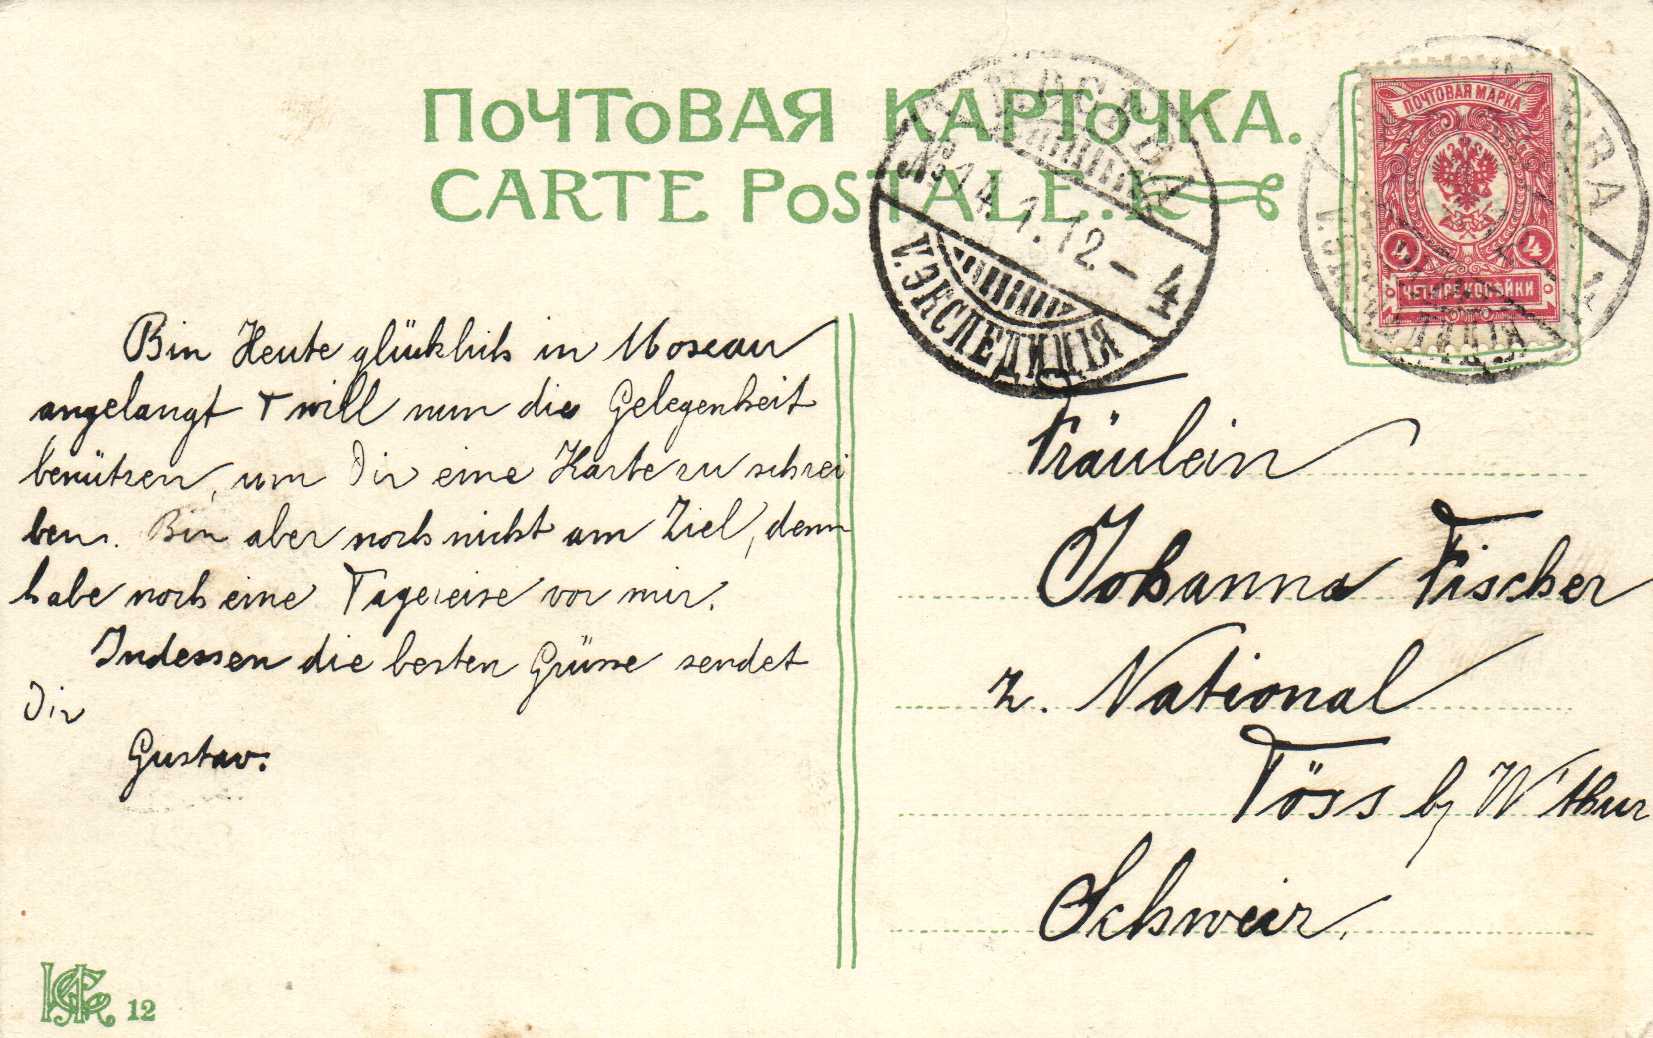 ПОЧТОВАЯ КАРТОЧКА.
CARTE POSTALE.
№ 14.1.12.-4
V. ЭКСПЕДИЦІЯ
ВА
ПОЧТОВАЯ МАРКА
4 4
ЧЕТЫРЕ КОПѢЙКИ
Bin Heute glücklich in Moscau
angelangt + will nun die Gelegenheit
benützen, um Dir eine Karte zu schrei
ben. Bin aber noch nicht am Ziel, denn
habe noch eine Tagereise vor mir.
Indessen die besten Grüsse sendet
Dir
Gustav.
Fräulein
Johanna Fischer
z. National
Töss b/ W'thur
Schweiz.
12